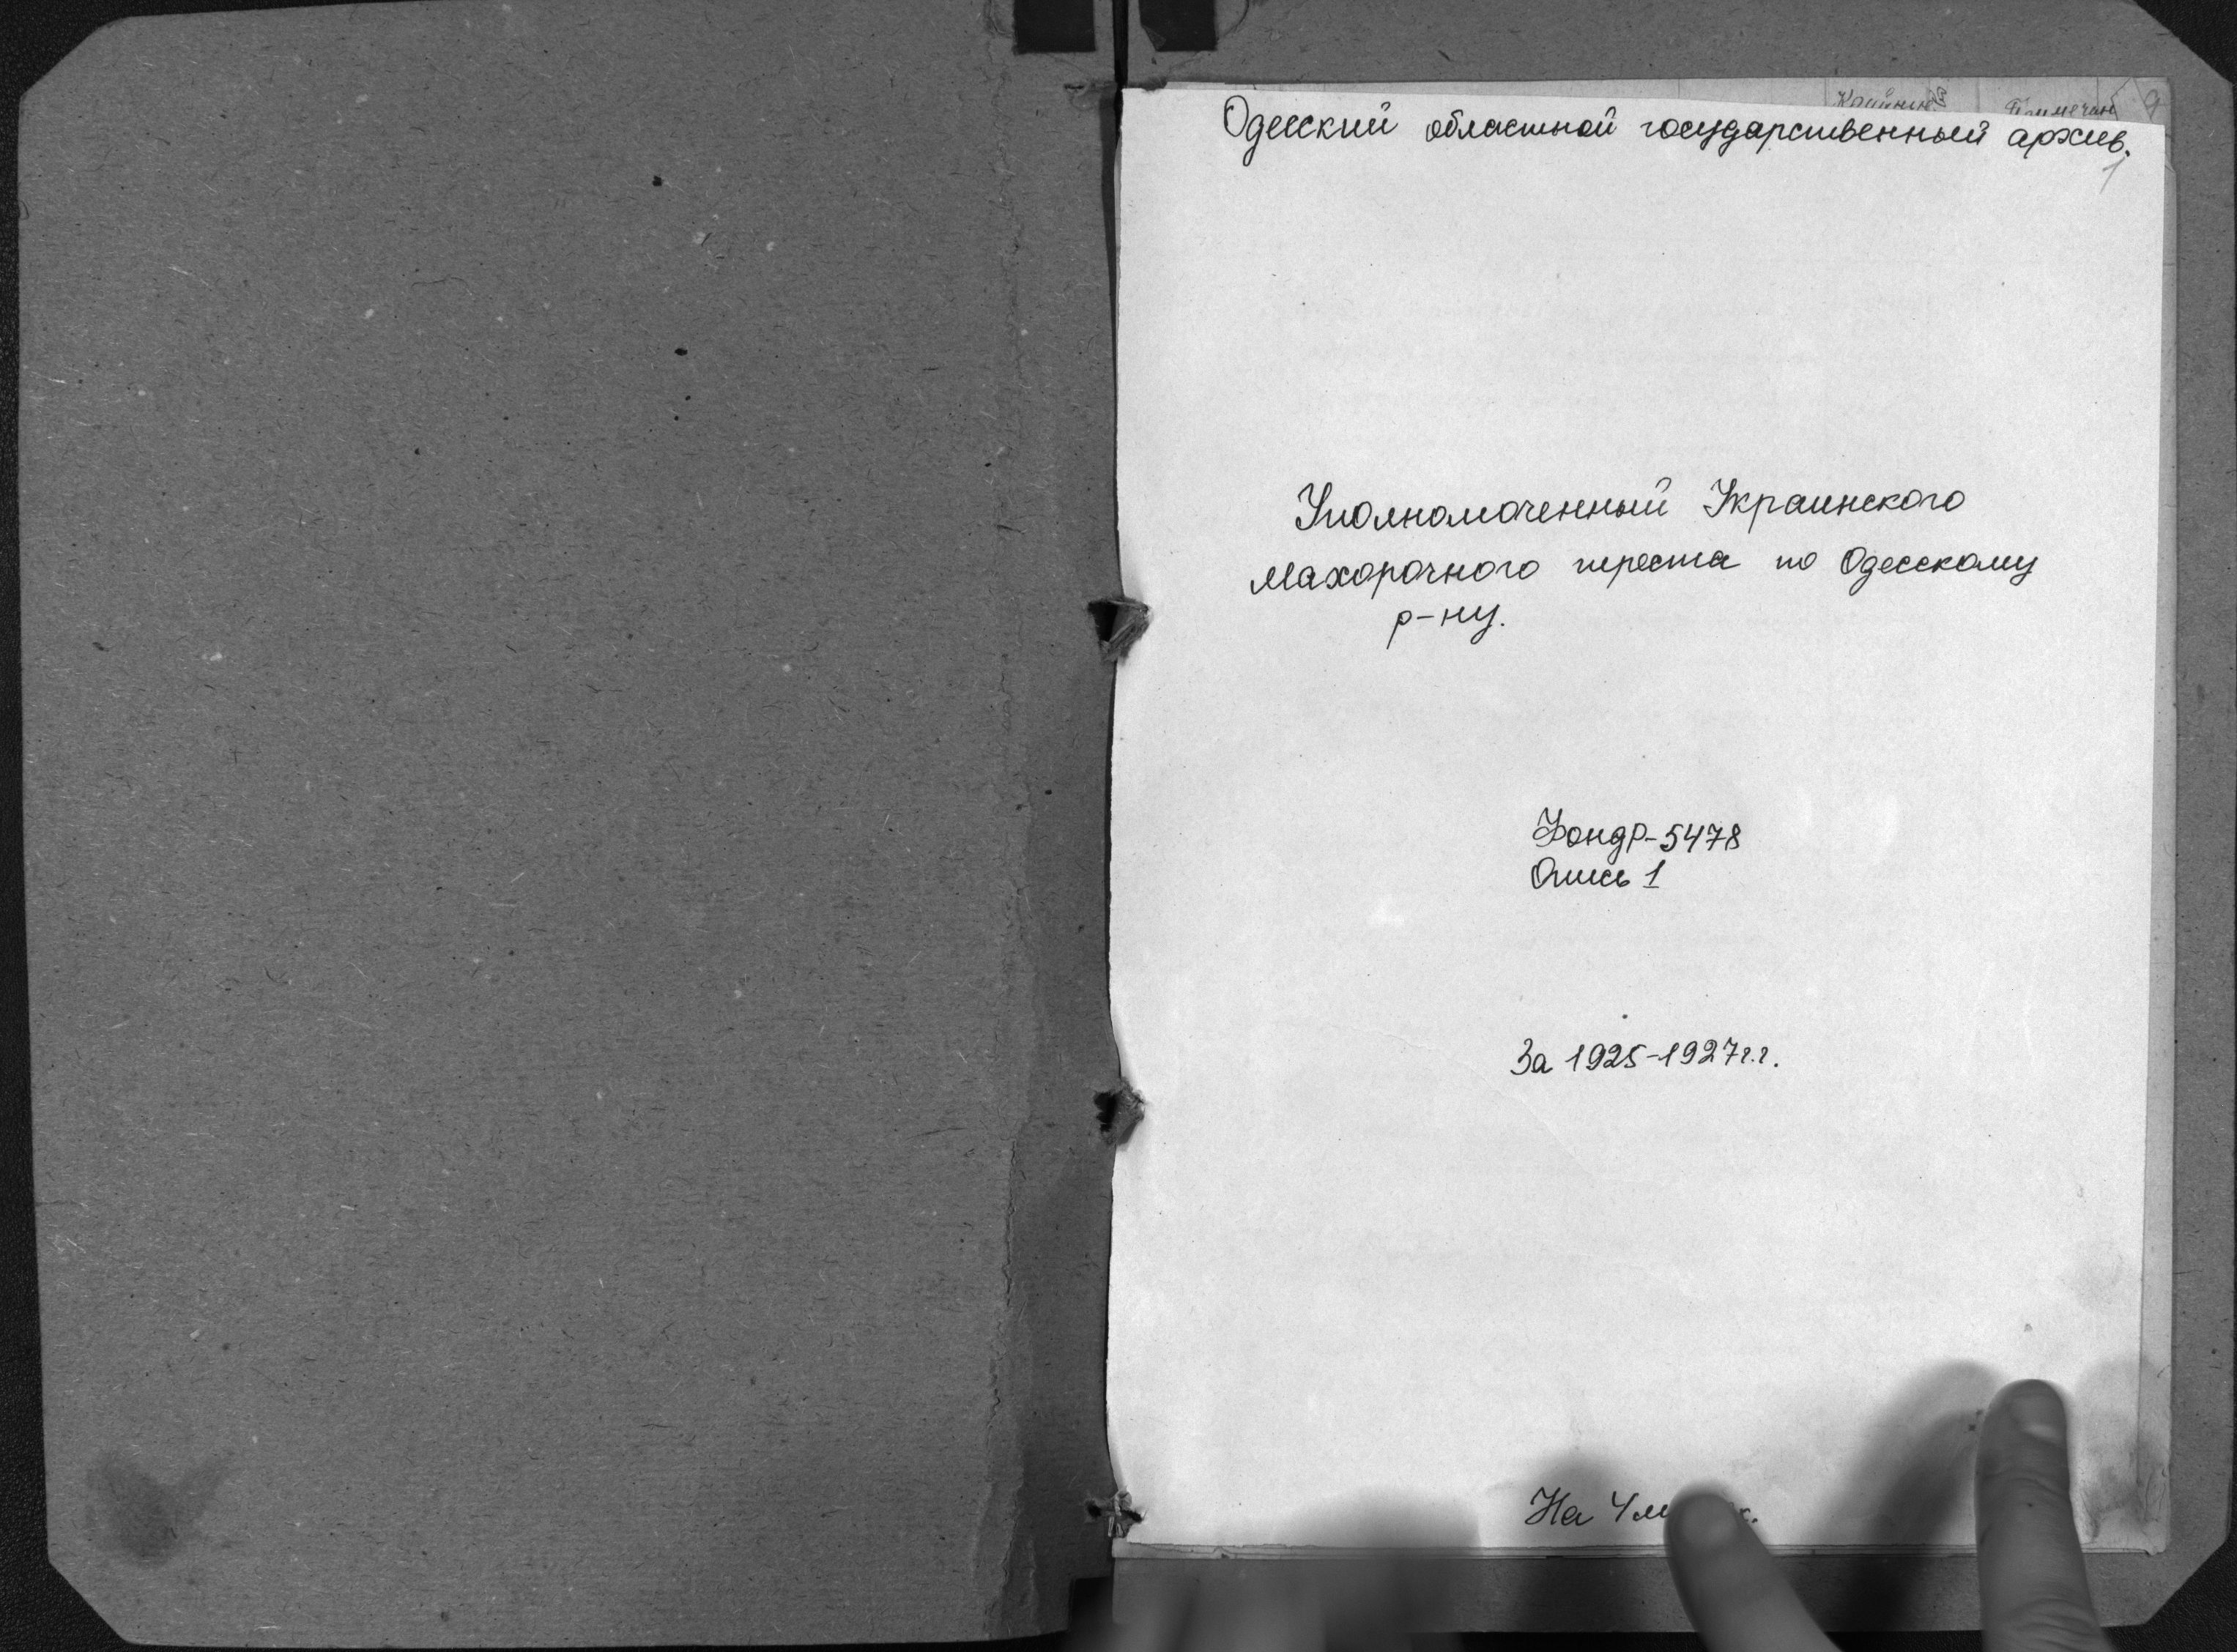 Одесский областной государственный архив.
1
Уполномоченный Украинского
Махорочного треста по Одесскому
р-ну.
Фонд Р-5478
Опись 1
За 1925-1927 г.г.
На 4